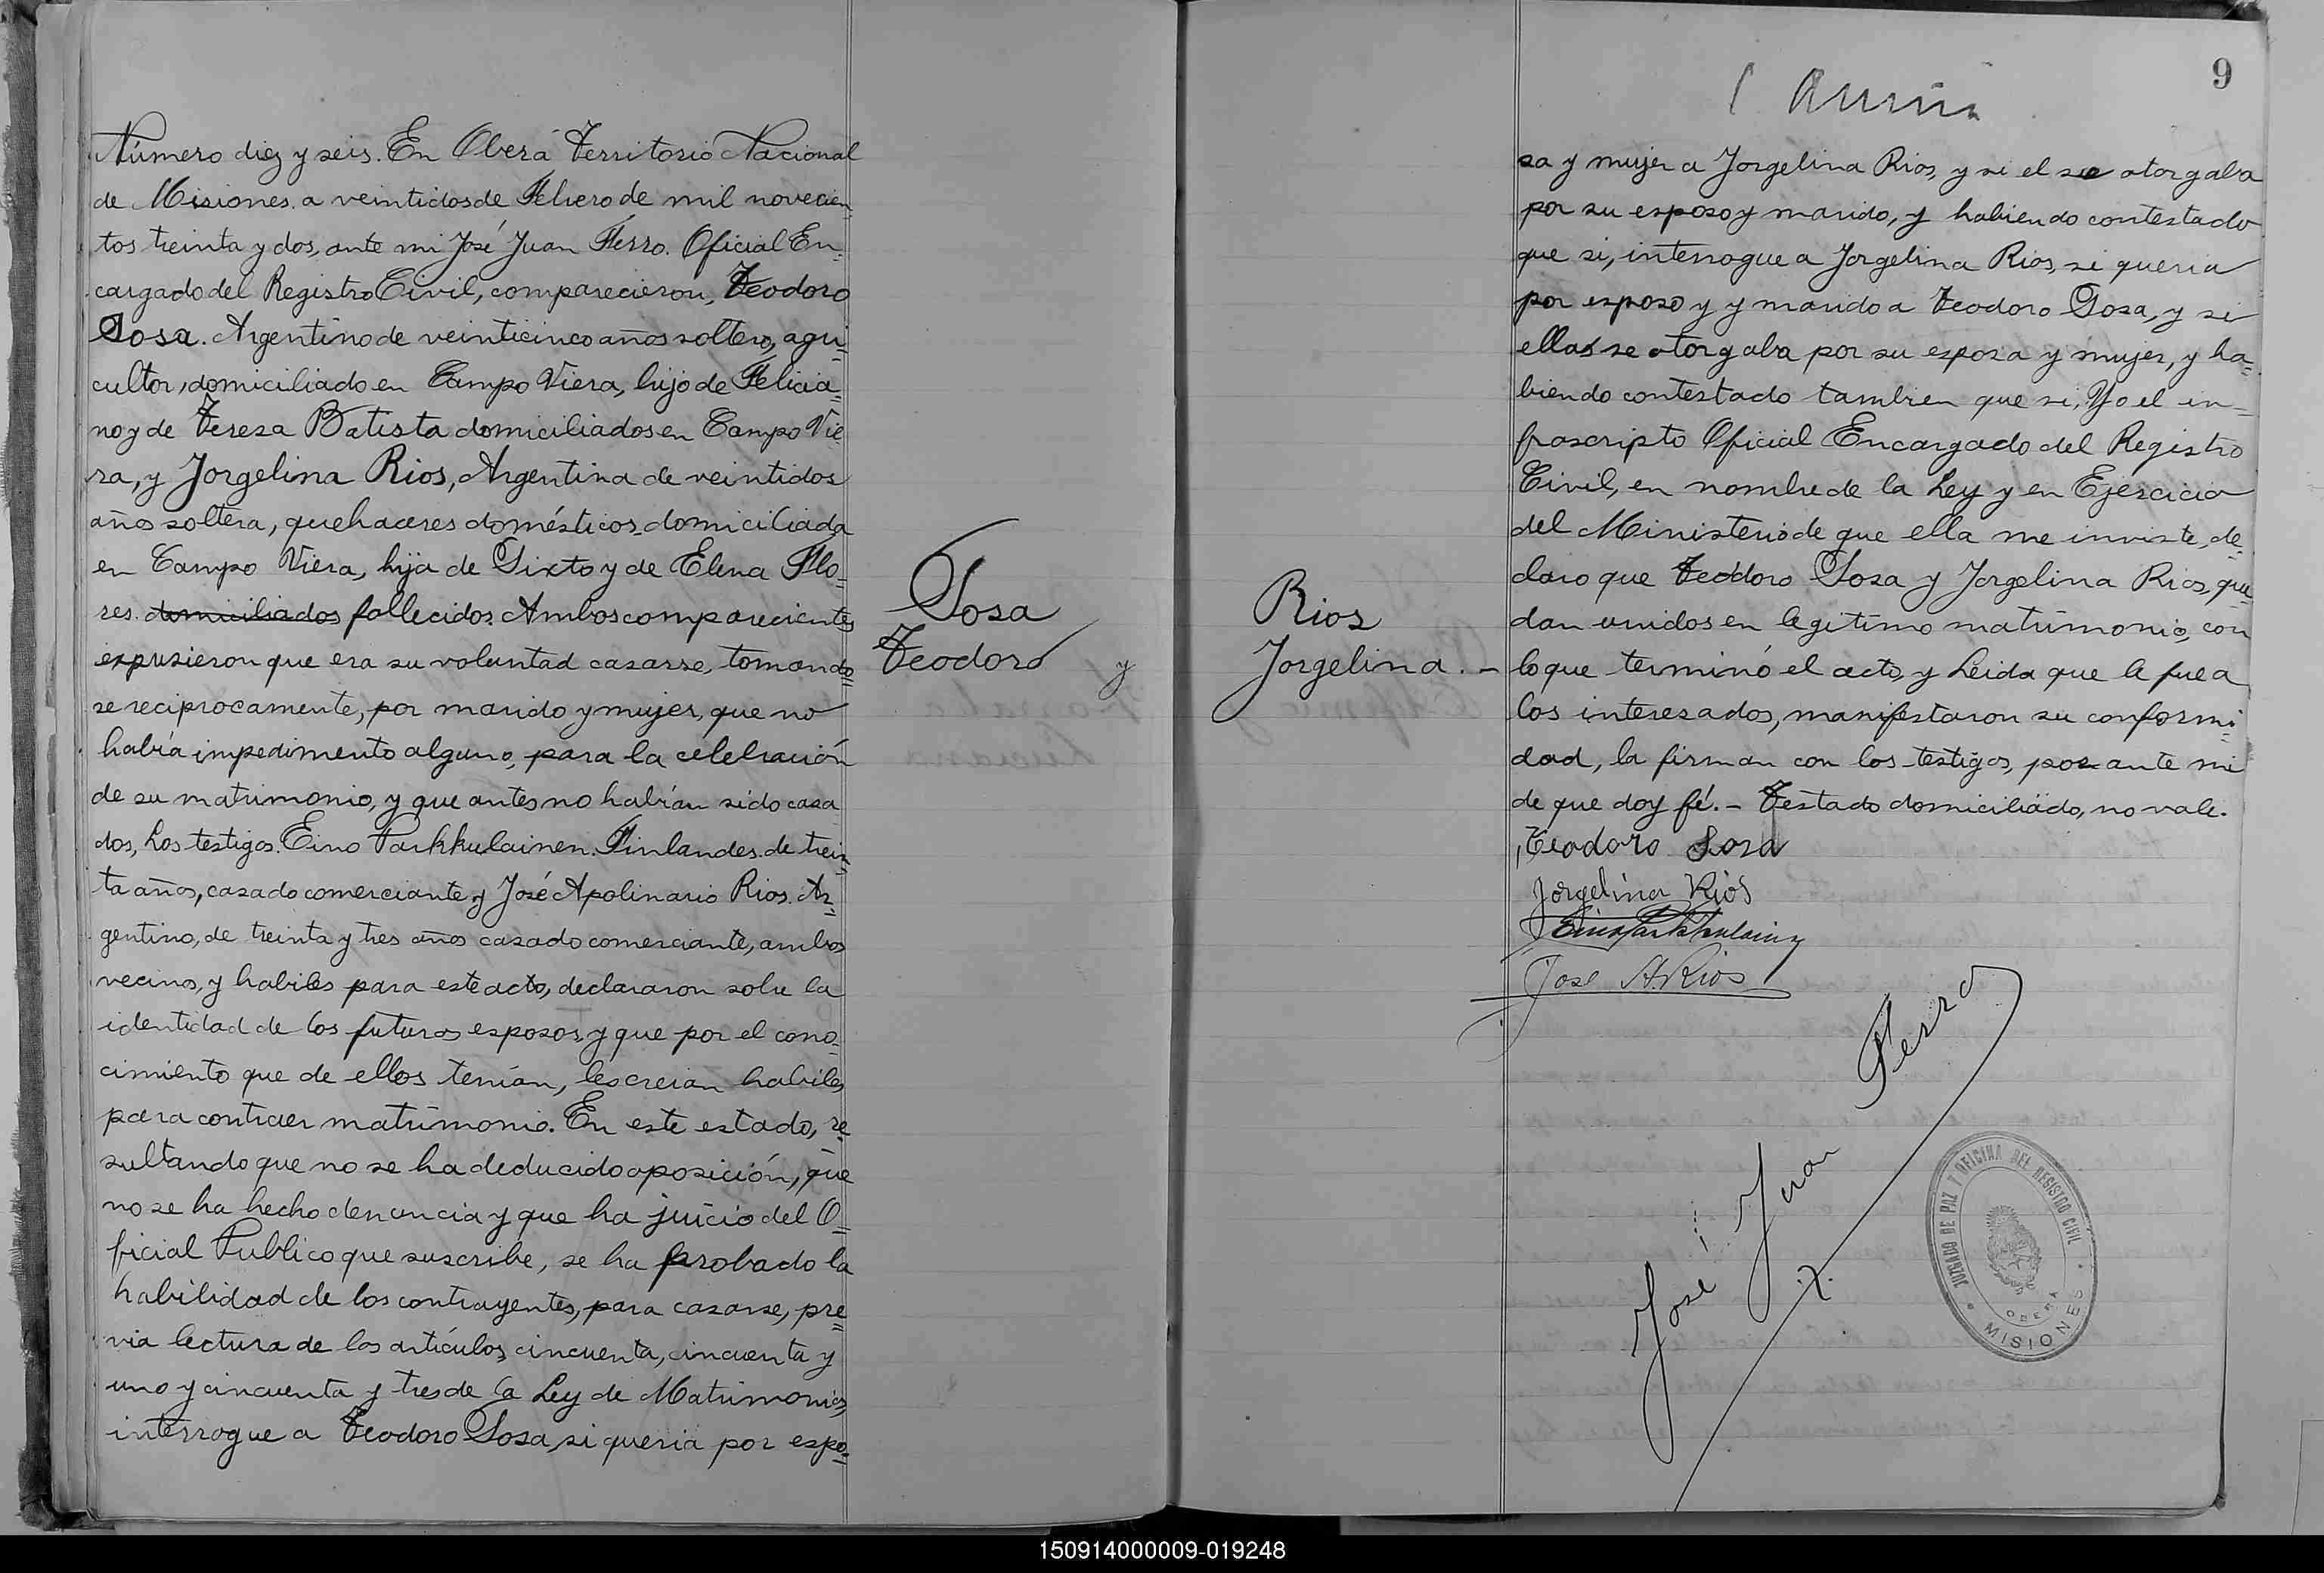 Número diez y seis. En Oberá Territorio Nacional
de Misiones, a veintidos de Febrero de mil novecien-
tos treinta y dos, ante mi José Juan Ferro. Oficial En-
cargado del Registro Civil, comparecieron, Teodoro
Sosa. Argentino de veinticinco años soltero, agri-
cultor, domiciliado en Campo Viera, hijo de Felicia-
no y de Teresa Batista domiciliados en Campo Vie
ra, y Jorgelina Rios, Argentina de veintidos
años soltera, quehaceres domésticos domiciliada
en Campo Viera, hija de Sixto y de Elena Flo-
res. domiciliados fallecidos. Ambos comparecientes
expusieron que era su voluntad casarse, tomando=
se reciprocamente, por marido y mujer, que no
había impedimento alguno, para la celebración
de su matrimonio, y que antes no habían sido casa
dos, Los testigos. Eino Parkkulainen. Finlandes. de trein=
ta años, casado comerciante y José Apolinario Rios. Ar=
gentino, de treinta y tres años casado comerciante, ambos
vecinos, y habiles para este acto, declararon sobre la
identidad de los futuros esposos, y que por el cono=
cimiento que de ellos tenían, les creian habiles
para contraer matrimonio. En este estado, re
sultando que no se ha deducido oposición, que
no se ha hecho denuncia y que ha juicio del O=
ficial Publico que suscribe, se ha probado la
habilidad de los contrayentes, para casarse, pre=
via lectura de los artículos, cincuenta, cincuenta y
uno y cincuenta y tres de la Ley de Matrimonio,
interrogue a Teodoro Sosa, si queria por espo=
Sosa
Teodoro y
Rios
Jorgelina.-
9
sa y mujer a Jorgelina Rios, y si el se otorgaba
por su esposo y marido, y habiendo contestado
que si, interrogue a Jorgelina Rios, si queria
por esposo y y marido a Teodoro Sosa, y si
ella se otorgaba por su esposa y mujer, y ha=
biendo contestado tambien que si, Yo el in=
frascripto Oficial Encargado del Registro
Civil, en nombre de la Ley y en Ejercicio
del Ministerio de que ella me inviste, de=
claro que Teodoro Sosa y Jorgelina Rios, que=
dan unidos en legitimo matrimonio, con
lo que terminó el acto, y Leida que le fue a
los interesados, manifestaron su conformi=
dad, la firman con los testigos, por ante mi
de que doy fé.- Testado domiciliado, no vale.
Teodoro Sosa
Jorgelina Rios
Jose A. Rios
José Juan Ferro
JUZGADO DE PAZ Y OFICINA DEL REGISTRO CIVIL
OBERA
MISIONES
150914000009-019248